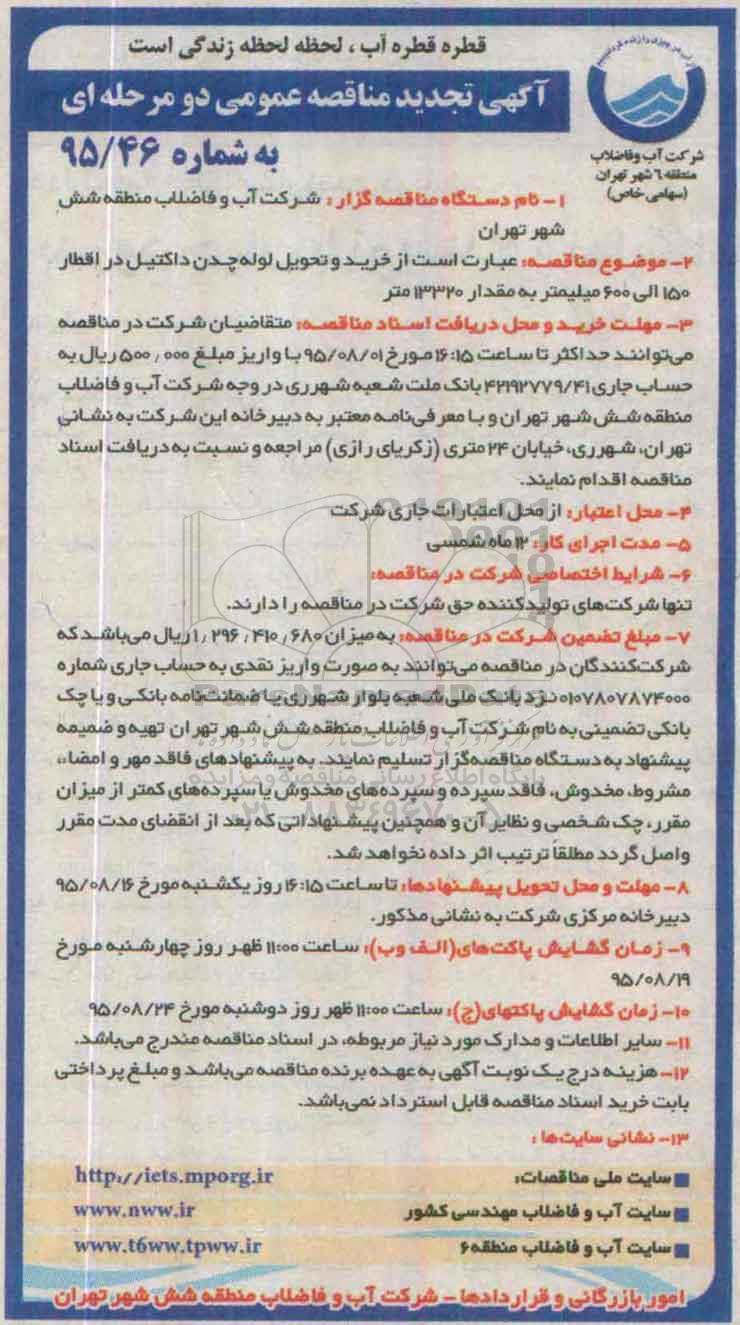 قطره قطره آب ، لحظه لحظه زندگی است
آگهی تجدید مناقصه عمومی دو مرحله ای
به شماره ۹۵/۴۶
شرکت آب وفاضلاب
منطقه ٦ شهر تهران
(سهامی خاص)
۱- نام دستگاه مناقصه گزار : شرکت آب و فاضلاب منطقه شش
شهر تهران
۲- موضوع مناقصه: عبارت است از خرید و تحویل لوله چدن داکتیل در اقطار
۱۵۰ الی ۶۰۰ میلیمتر به مقدار ۱۳۳۲۰ متر
۳- مهلت خرید و محل دریافت اسناد مناقصه: متقاضیان شرکت در مناقصه
می‌توانند حداکثر تا ساعت ۱۶:۱۵ مورخ ۹۵/۰۸/۰۱ با واریز مبلغ ۵۰۰٫۰۰۰ ریال به
حساب جاری ۴۲۱۹۲۷۷۹/۴۱ بانک ملت شعبه شهرری در وجه شرکت آب و فاضلاب
منطقه شش شهر تهران و با معرفی‌نامه معتبر به دبیرخانه این شرکت به نشانی
تهران، شهرری، خیابان ۲۴ متری (زکریای رازی) مراجعه و نسبت به دریافت اسناد
مناقصه اقدام نمایند.
۴- محل اعتبار: از محل اعتبارات جاری شرکت
۵- مدت اجرای کار: ۱۲ ماه شمسی
۶- شرایط اختصاصی شرکت در مناقصه:
تنها شرکت‌های تولیدکننده حق شرکت در مناقصه را دارند.
۷- مبلغ تضمین شرکت در مناقصه: به میزان ۱٫۲۹۶٫۴۱۰٫۶۸۰ ریال می‌باشد که
شرکت‌کنندگان در مناقصه می‌توانند به صورت واریز نقدی به حساب جاری شماره
۰۱۰۷۸۰۷۸۷۴۰۰۰ نزد بانک ملی شعبه بلوار شهرری یا ضمانت‌نامه بانکی و یا چک
بانکی تضمینی به نام شرکت آب و فاضلاب منطقه شش شهر تهران تهیه و ضمیمه
پیشنهاد به دستگاه مناقصه‌گزار تسلیم نمایند. به پیشنهادهای فاقد مهر و امضاء،
مشروط، مخدوش، فاقد سپرده و سپرده‌های مخدوش یا سپرده‌های کمتر از میزان
مقرر، چک شخصی و نظایر آن و همچنین پیشنهاداتی که بعد از انقضای مدت مقرر
واصل گردد مطلقاً ترتیب اثر داده نخواهد شد.
۸- مهلت و محل تحویل پیشنهادها: تا ساعت ۱۶:۱۵ روز یکشنبه مورخ ۹۵/۰۸/۱۶
دبیرخانه مرکزی شرکت به نشانی مذکور.
۹- زمان گشایش پاکت‌های(الف وب): ساعت ۱۱:۰۰ ظهر روز چهارشنبه مورخ
۹۵/۰۸/۱۹
۱۰- زمان گشایش پاکتهای(ج): ساعت ۱۱:۰۰ ظهر روز دوشنبه مورخ ۹۵/۰۸/۲۴
۱۱- سایر اطلاعات و مدارک مورد نیاز مربوطه، در اسناد مناقصه مندرج می‌باشد.
۱۲- هزینه درج یک نوبت آگهی به عهده برنده مناقصه می‌باشد و مبلغ پرداختی
بابت خرید اسناد مناقصه قابل استرداد نمی‌باشد.
۱۳- نشانی سایت‌ها :
سایت ملی مناقصات: http://iets.mporg.ir
سایت آب و فاضلاب مهندسی کشور www.nww.ir
سایت آب و فاضلاب منطقه۶ www.t6ww.tpww.ir
امور بازرگانی و قراردادها - شرکت آب و فاضلاب منطقه شش شهر تهران